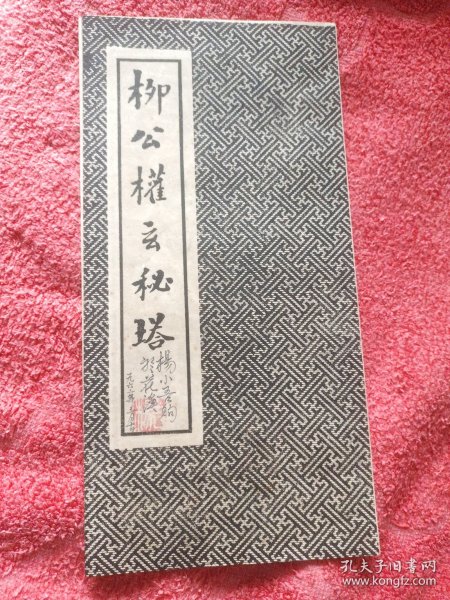 柳公權玄秘塔
楊小吾购
孔夫子旧书网
www.kongfz.com